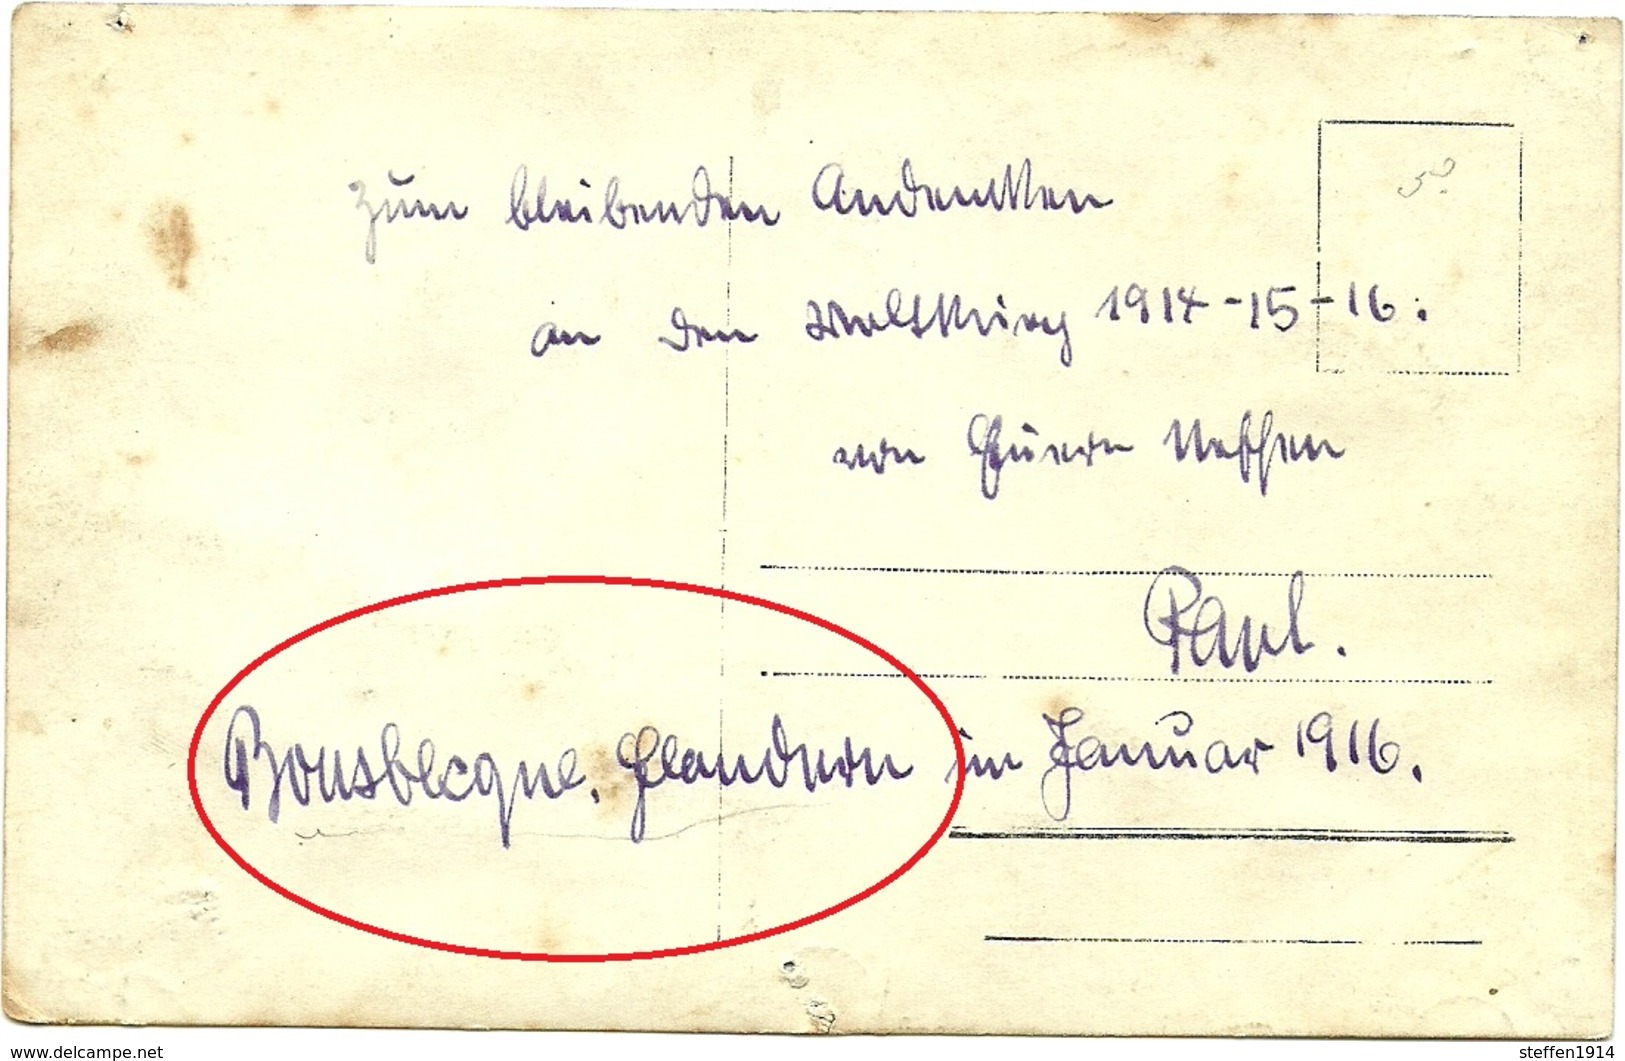 Zum bleibenden Andenken
an den Weltkrieg 1914-15-16.
von Euern Neffen
Paul.
Bousbecque, Flandern im Januar 1916.
www.delcampe.net
steffen1914